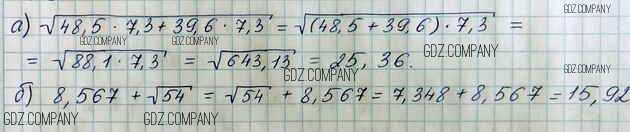 GDZ.COMPANY
а) √48,5 · 7,3 + 39,6 · 7,3 = √(48,5 + 39,6) · 7,3 =
GDZ.COMPANY GDZ.COMPANY GDZ.COMPANY
= √88,1 · 7,3 = √643,13 = 25,36.
GDZ.COMPANY GDZ.COMPANY
б) 8,567 + √54 = √54 + 8,567 = 7,348 + 8,567 = 15,92
GDZ.COMPANY GDZ.COMPANY GDZ.COMPANY